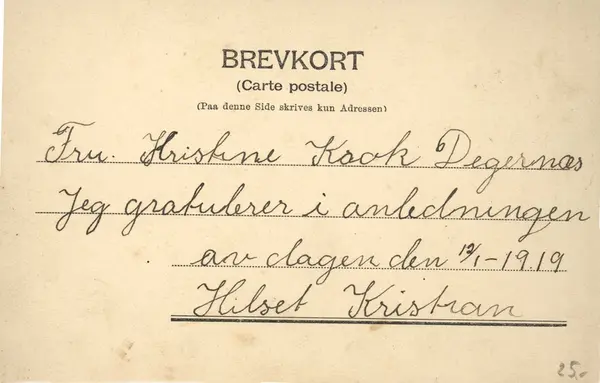 BREVKORT
(Carte postale)
(Paa denne Side skrives kun Adressen)
Fru. Kristine Krok Degernæs
Jeg gratulerer i anledningen
av dagen den 12/1-1919
Hilset Kristian
25,-